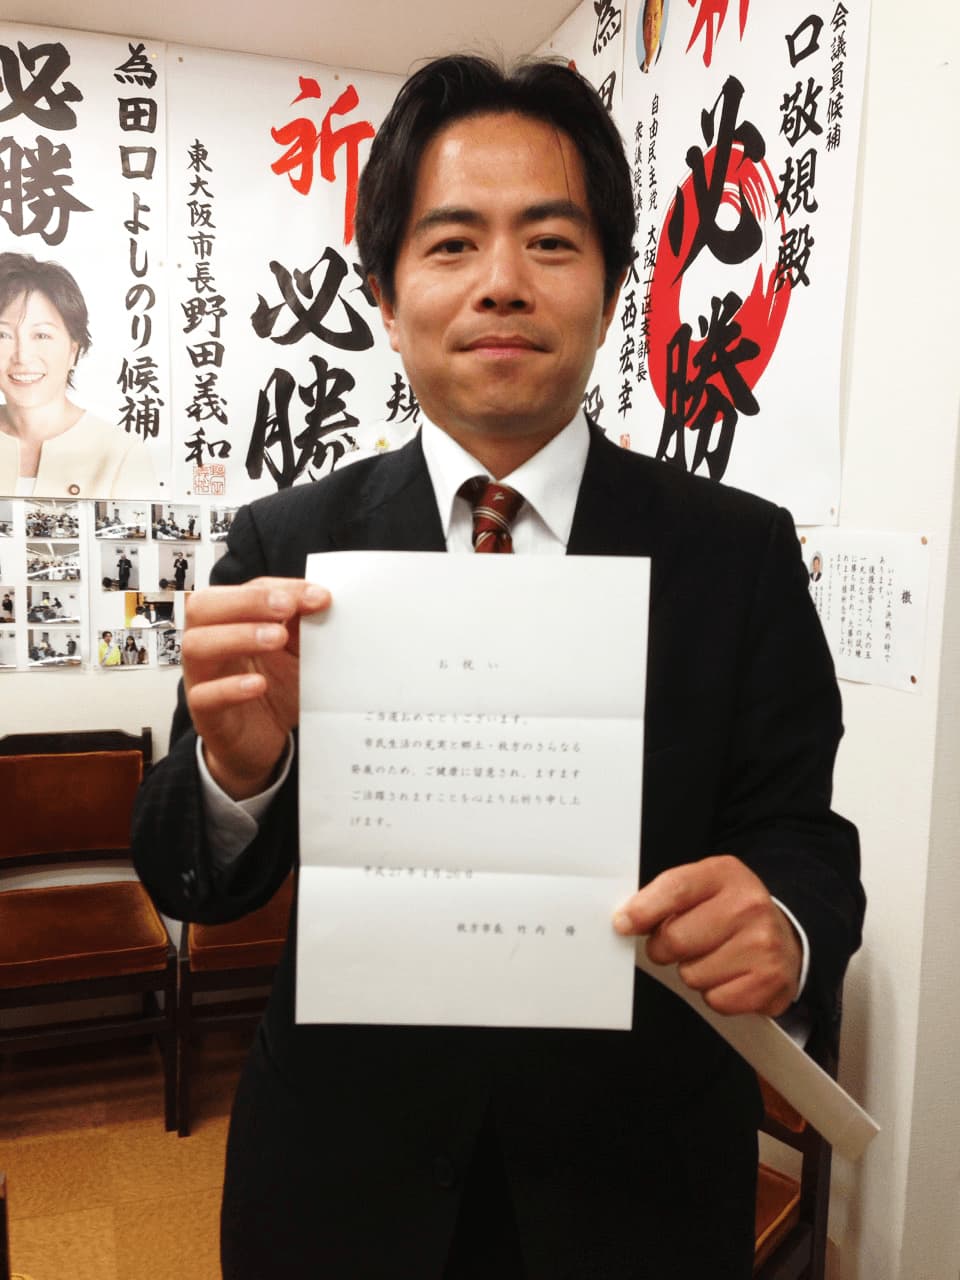 必勝
為 田口よしのり候補
祈
必勝
東大阪市長 野田義和
規
為 田
祈
必勝
口敬規殿
会議員候補
自由民主党
大西宏幸
檄
いよいよ決戦の時で
あります。
お祝い
ご当選おめでとうございます。
市民生活の充実と郷土・枚方のさらなる
発展のため、ご健康に留意され、ますます
ご活躍されますことを心よりお祈り申し上
げます。
平成27年4月26日
枚方市長 竹内 脩